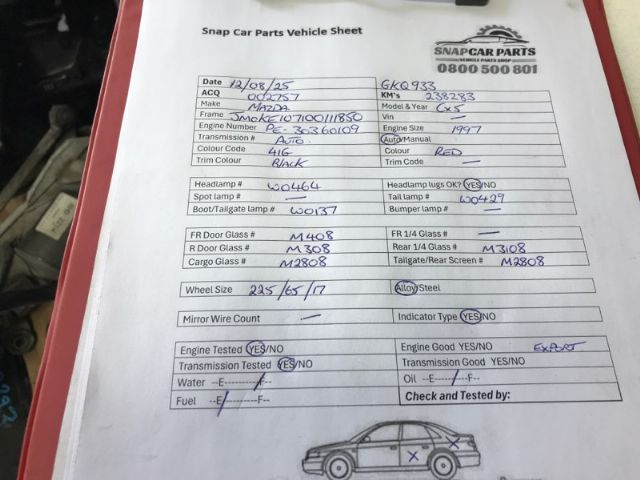 Snap Car Parts Vehicle Sheet
SNAPCAR PARTS
VEHICLE PARTS SHOP
0800 500 801
Date 12/08/25 GKQ933
ACQ 002757 KM's 238283
Make MAZDA Model & Year CX5
Frame JM0KE107100111850 Vin —
Engine Number PE-30360109 Engine Size 1997
Transmission # AUTO Auto/Manual
Colour Code 41G Colour RED
Trim Colour BLACK Trim Code —
Headlamp # W0464 Headlamp lugs OK? YES/NO
Spot lamp # — Tail lamp # W0429
Boot/Tailgate lamp # W0137 Bumper lamp # —
FR Door Glass # M408 FR 1/4 Glass # —
R Door Glass # M308 Rear 1/4 Glass # M3108
Cargo Glass # M2808 Tailgate/Rear Screen # M2808
Wheel Size 225/65/17 Alloy/Steel
Mirror Wire Count — Indicator Type YES/NO
Engine Tested YES/NO Engine Good YES/NO EXPORT
Transmission Tested YES/NO Transmission Good YES/NO
Water --E----------F-- Oil --E----------F--
Fuel --E----------F-- Check and Tested by: